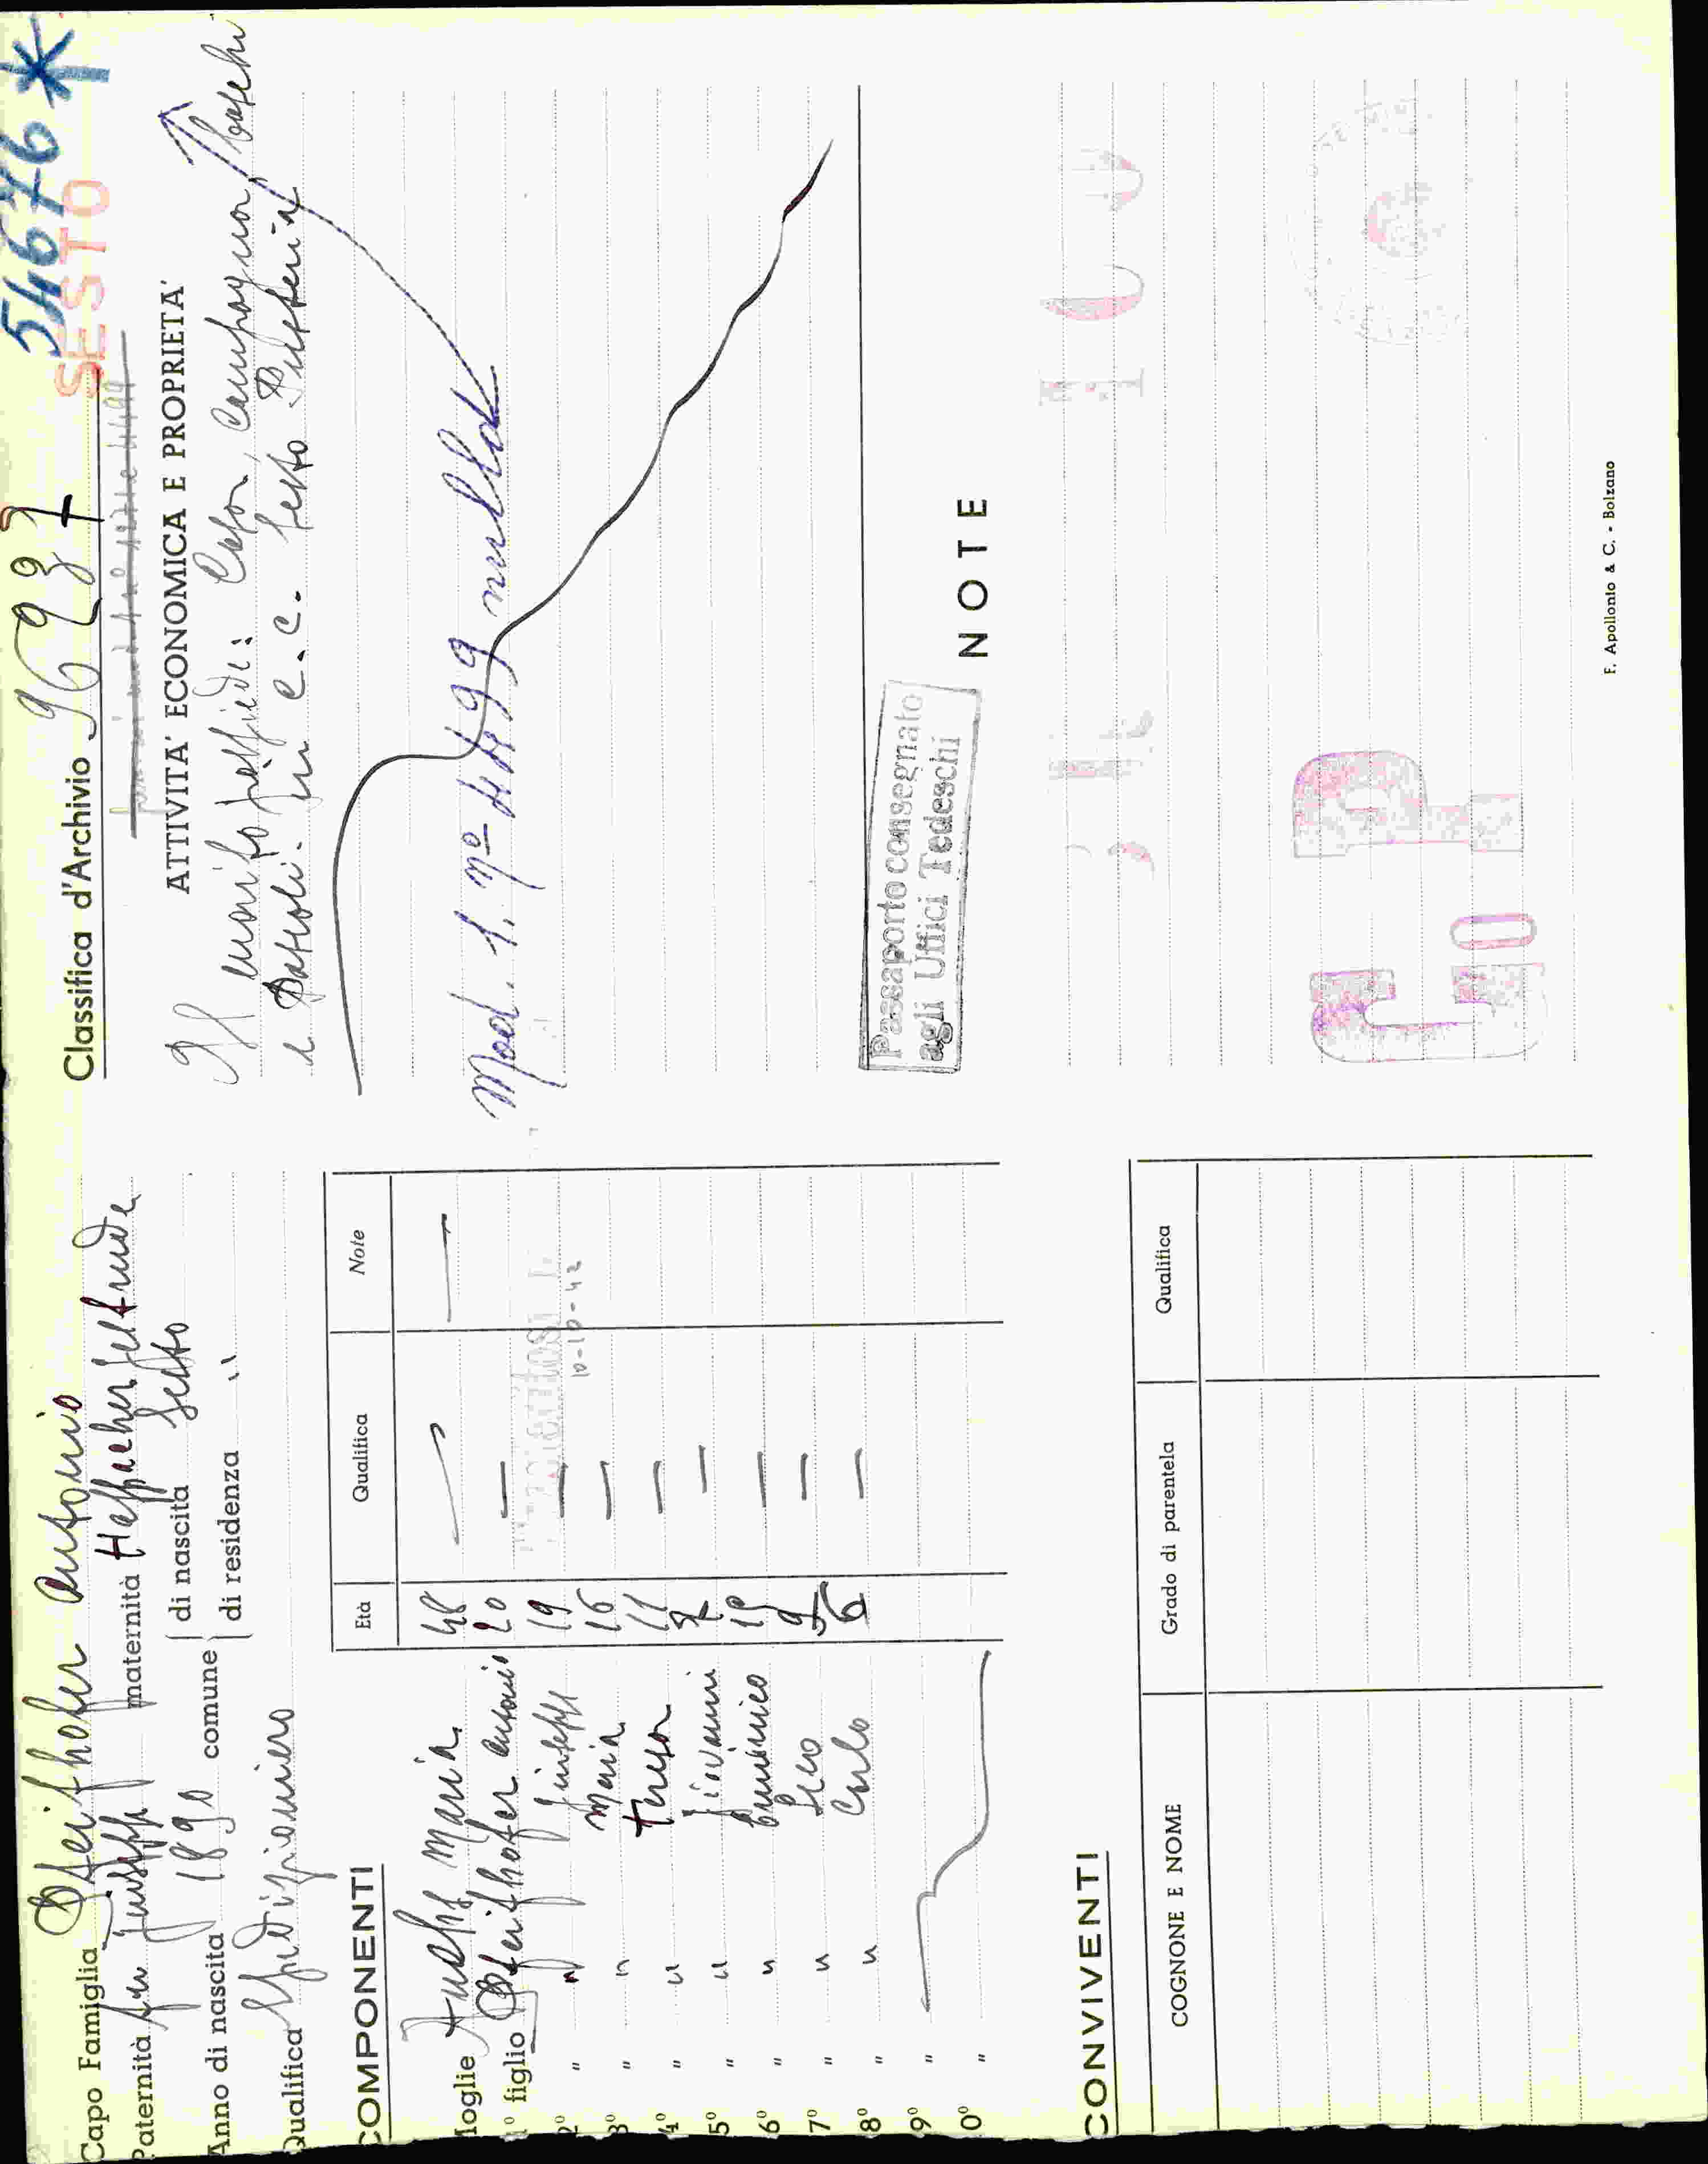 Capo Famiglia Pfeifhofer Antonio
Paternità fu Giuseppe maternità Geltrude
Anno di nascita 1890 comune { di nascita Sesto
{ di residenza "
Qualifica Spedizioniero
COMPONENTI
Età Qualifica Note
Moglie Maria 48 — —
1° figlio Pfeifhofer Antonio 20 —
2° " " Giuseppe 19 —
3° " " Maria 16 —
4° " " Teresa 11 —
5° " " Giovanni —
6° " " —
7° " " —
8° " " Carlo 6 —
9° "
0° "
10-10-42
CONVIVENTI
COGNONE E NOME Grado di parentela Qualifica
Classifica d'Archivio
54676 *
SESTO
ATTIVITA' ECONOMICA E PROPRIETA'
Il marito possiede: Casa, Campagna, boschi
e Pascoli. in C.C. Sesto Pusteria
Mod. 1. nº 4499 nulla
Passaporto consegnato
agli Uffici Tedeschi
NOTE
F. Apollonio & C. - Bolzano